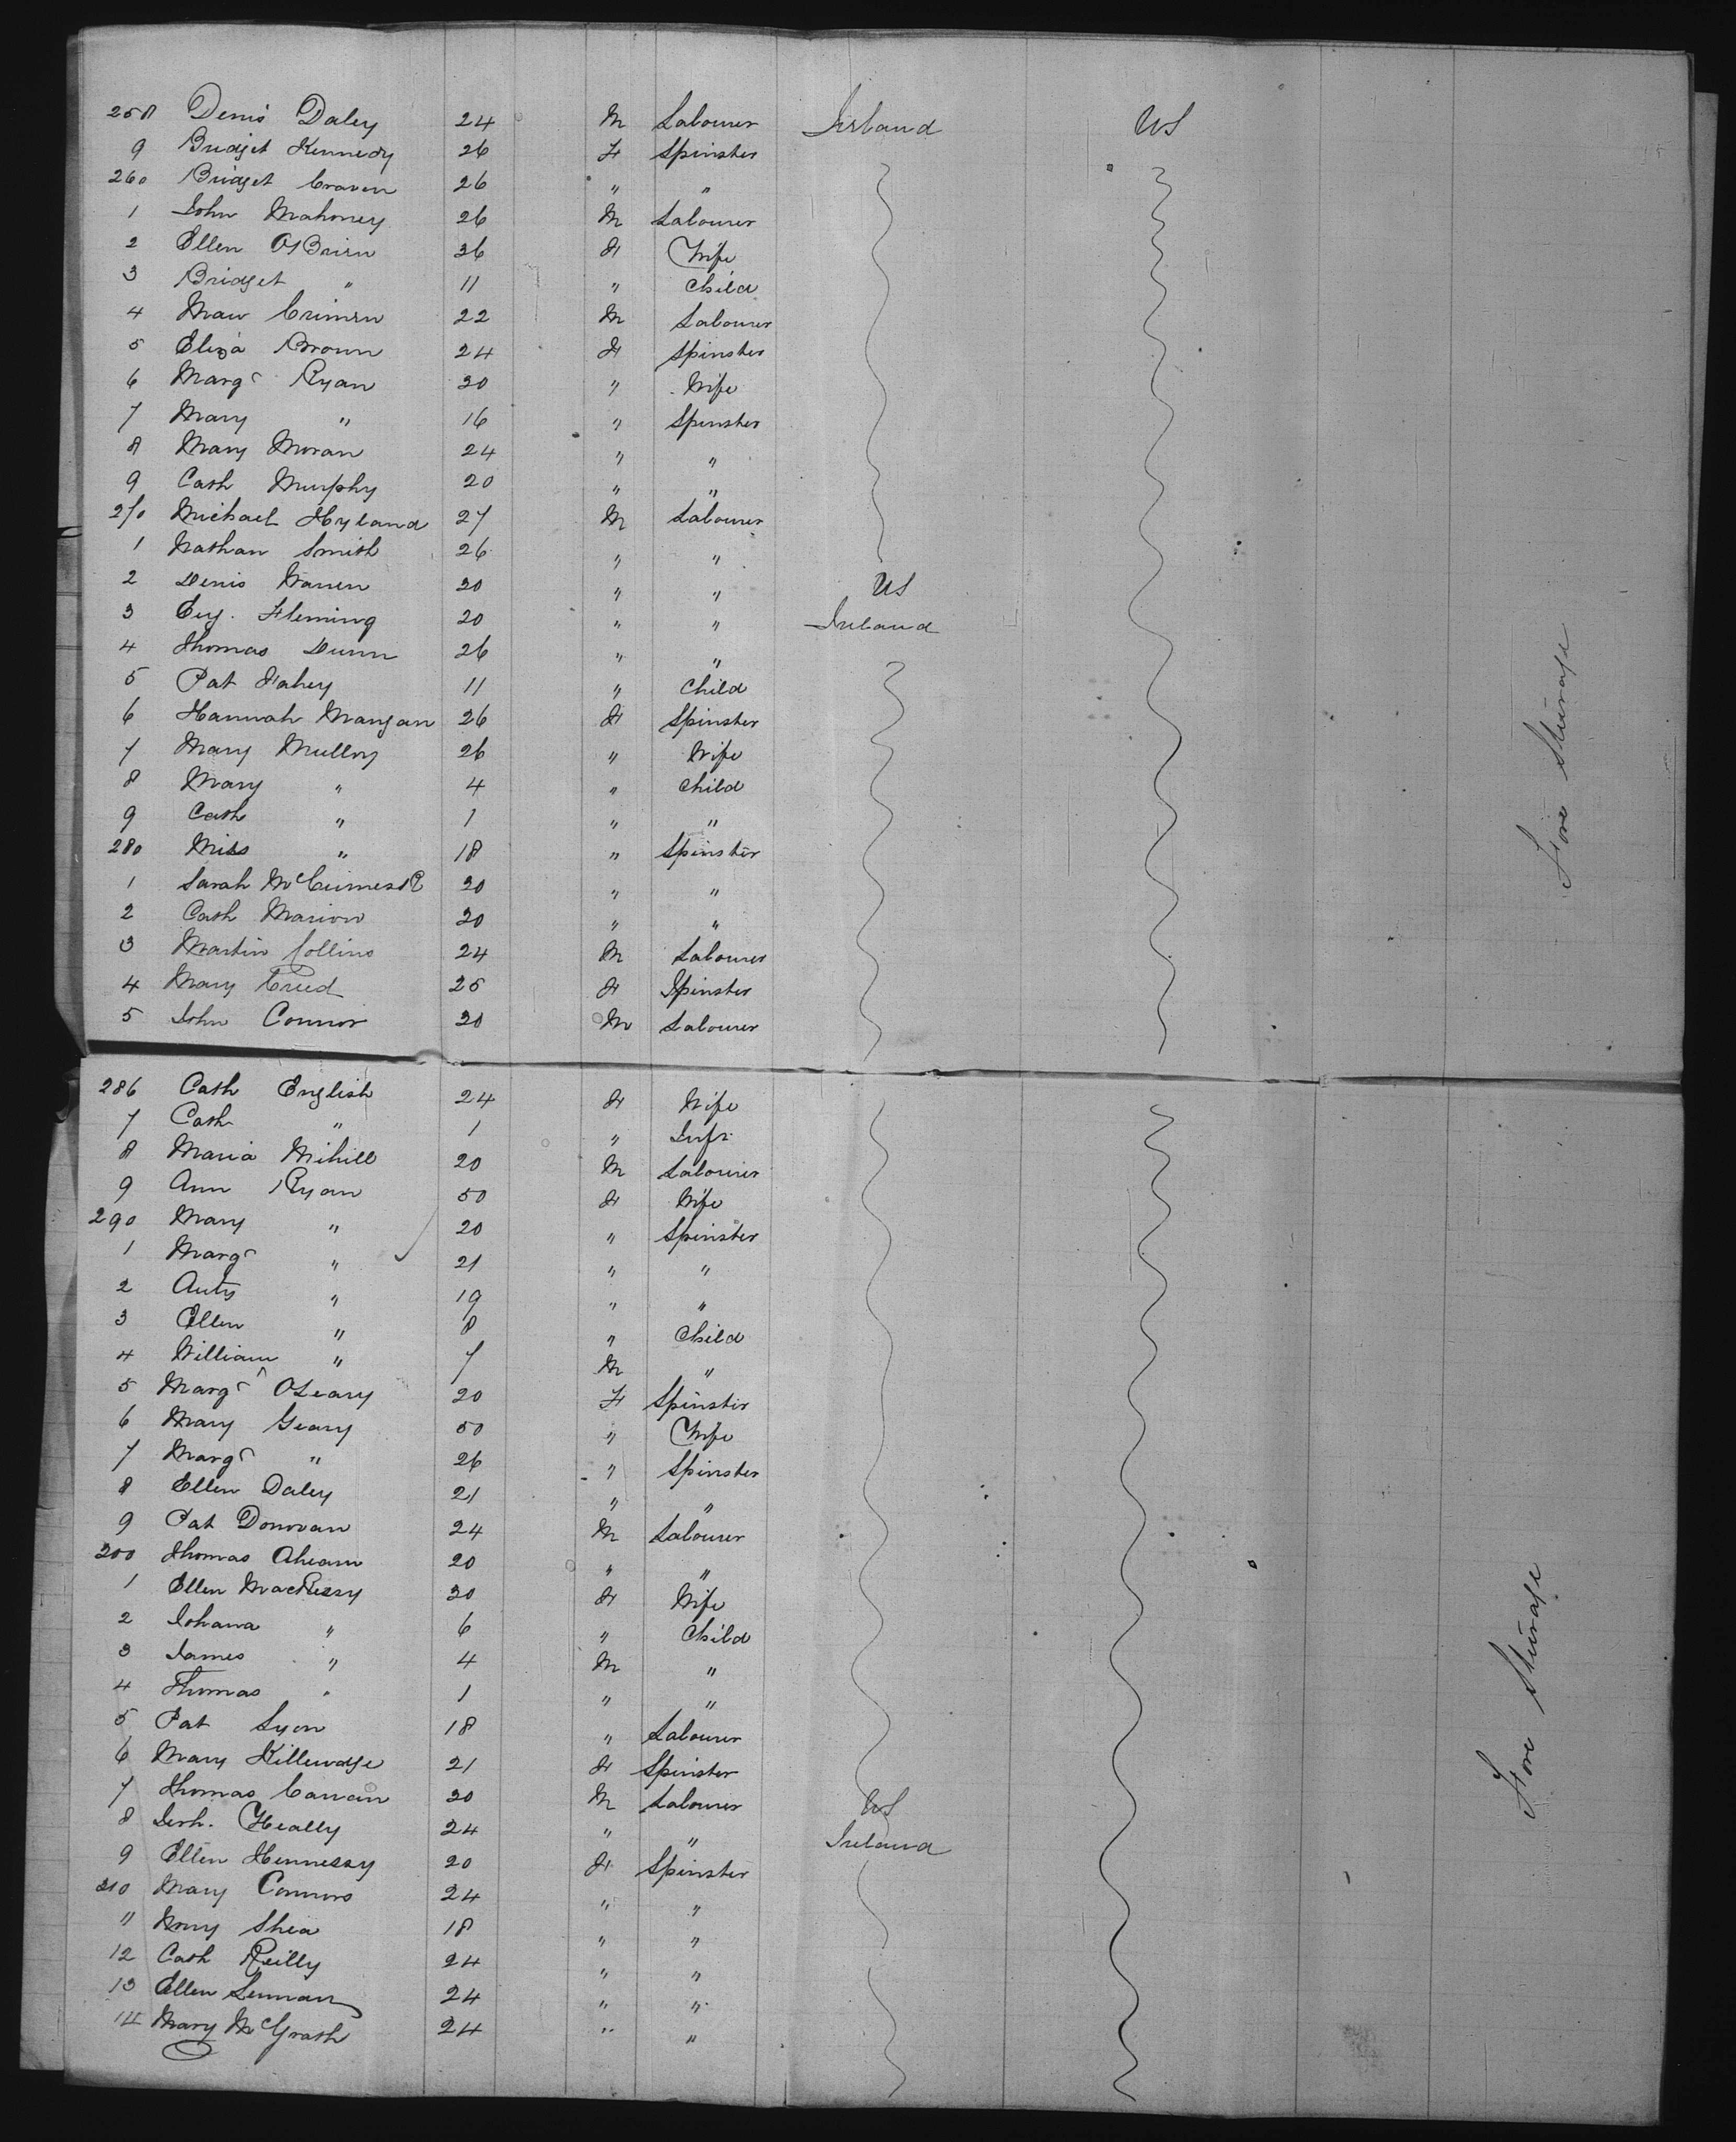 258 Denis Daley 24 M Labourer Ireland US
9 Bridget Kennedy 26 F Spinster
260 Bridget Craven 26 " "
1 John Mahoney 26 M Labourer
2 Ellen O'Brien 36 F Wife
3 Bridget " 11 " Child
4 22 M Labourer
5 Eliza Brown 24 F Spinster
6 Margt Ryan 30 " Wife
7 Mary " 16 " Spinster
8 Mary Moran 24 " "
9 Cath Murphy 20 " "
270 Michael Hyland 27 M Labourer
1 Nathan Smith 26 " "
2 Denis Warren 30 " " US
3 Fleming 20 " " Ireland
4 Thomas Dunn 26 " "
5 Pat Fahey 11 " Child
6 Hannah Mangan 26 F Spinster
7 Mary Mulloy 26 " Wife
8 Mary " 4 " Child
9 Cath " 1 " "
280 Miss " 18 " Spinster
1 Sarah 20 " "
2 Cath Marion 20 " "
3 Martin Collins 24 M Labourer
4 Mary Creed 25 F Spinster
5 John Connor 30 M Labourer
Fore Steerage
286 Cath English 24 F Wife
7 Cath " 1 " Inft
8 Maria Mihill 20 M Labourer
9 Ann Ryan 50 F Wife
290 Mary " 20 " Spinster
1 Margt " 21 " "
2 " 19 " "
3 Ellen " 8 " Child
4 William " 7 M "
5 Margt OLeary 20 F Spinster
6 Mary Geary 50 " Wife
7 Margt " 26 " Spinster
8 Ellen Daley 21 " "
9 Pat Donovan 24 M Labourer
300 Thomas Ahearn 20 " "
1 Ellen 30 F Wife
2 Johana " 6 " Child
3 James " 4 M "
4 Thomas " 1 " "
5 Pat Lyon 18 " Labourer
6 Mary 21 F Spinster
7 Thomas 30 M Labourer US
8 Jerh. Heally 24 " " Ireland
9 Ellen Hennessy 20 F Spinster
310 Mary Connors 24 " "
11 Mary Shea 18 " "
12 Cath Reilly 24 " "
13 Ellen Lennan 24 " "
14 Mary McGrath 24 " "
Fore Steerage